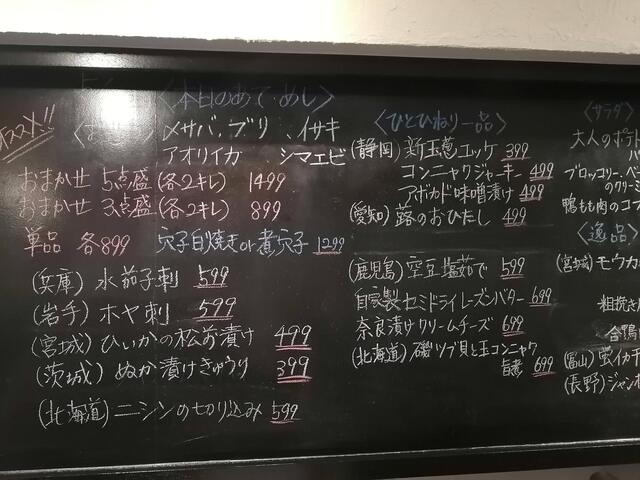 オススメ!!
〈本日のあて・めし〉
〆サバ、ブリ、イサキ
アオリイカ シマエビ
おまかせ 5点盛(各2キレ) 1499
おまかせ 3点盛(各2キレ) 899
単品 各899 穴子白焼きor煮穴子 1299
(兵庫)水茄子刺 599
(岩手)ホヤ刺 599
(宮城)ひいかの松前漬け 499
(茨城)ぬか漬けきゅうり 399
(北海道)ニシンの切り込み 599
〈ひとひねり一品〉
(静岡)新玉葱エッケ 399
コンニャクジャーキー 499
アボカド味噌漬け 499
(愛知)蕗のおひたし 499
(鹿児島)空豆塩茹で 599
自家製セミドライレーズンバター 699
奈良漬けクリームチーズ 699
(北海道)磯ツブ貝と玉コンニャク
旨煮 699
〈サラダ
大人のポテト
ブロッコリー、ベー
のクリー
鴨もも肉のコブ
〈逸品〉
(宮城)モウカ
粗挽き
合鴨
(富山)蛍イカ
(長野)ジャンボ